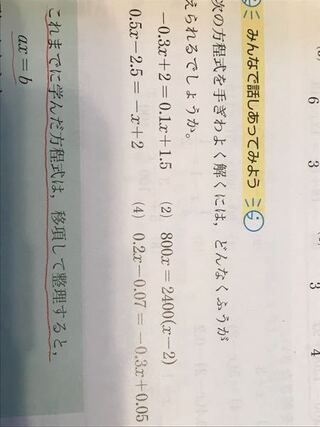 6
3
3
4
みんなで話しあってみよう
次の方程式を手ぎわよく解くには，どんなくふうが
えられるでしょうか。
-0.3x+2=0.1x+1.5
(2) 800x=2400(x-2)
0.5x-2.5=-x+2
(4) 0.2x-0.07=-0.3x+0.05
これまでに学んだ方程式は，移項して整理すると，
ax=b